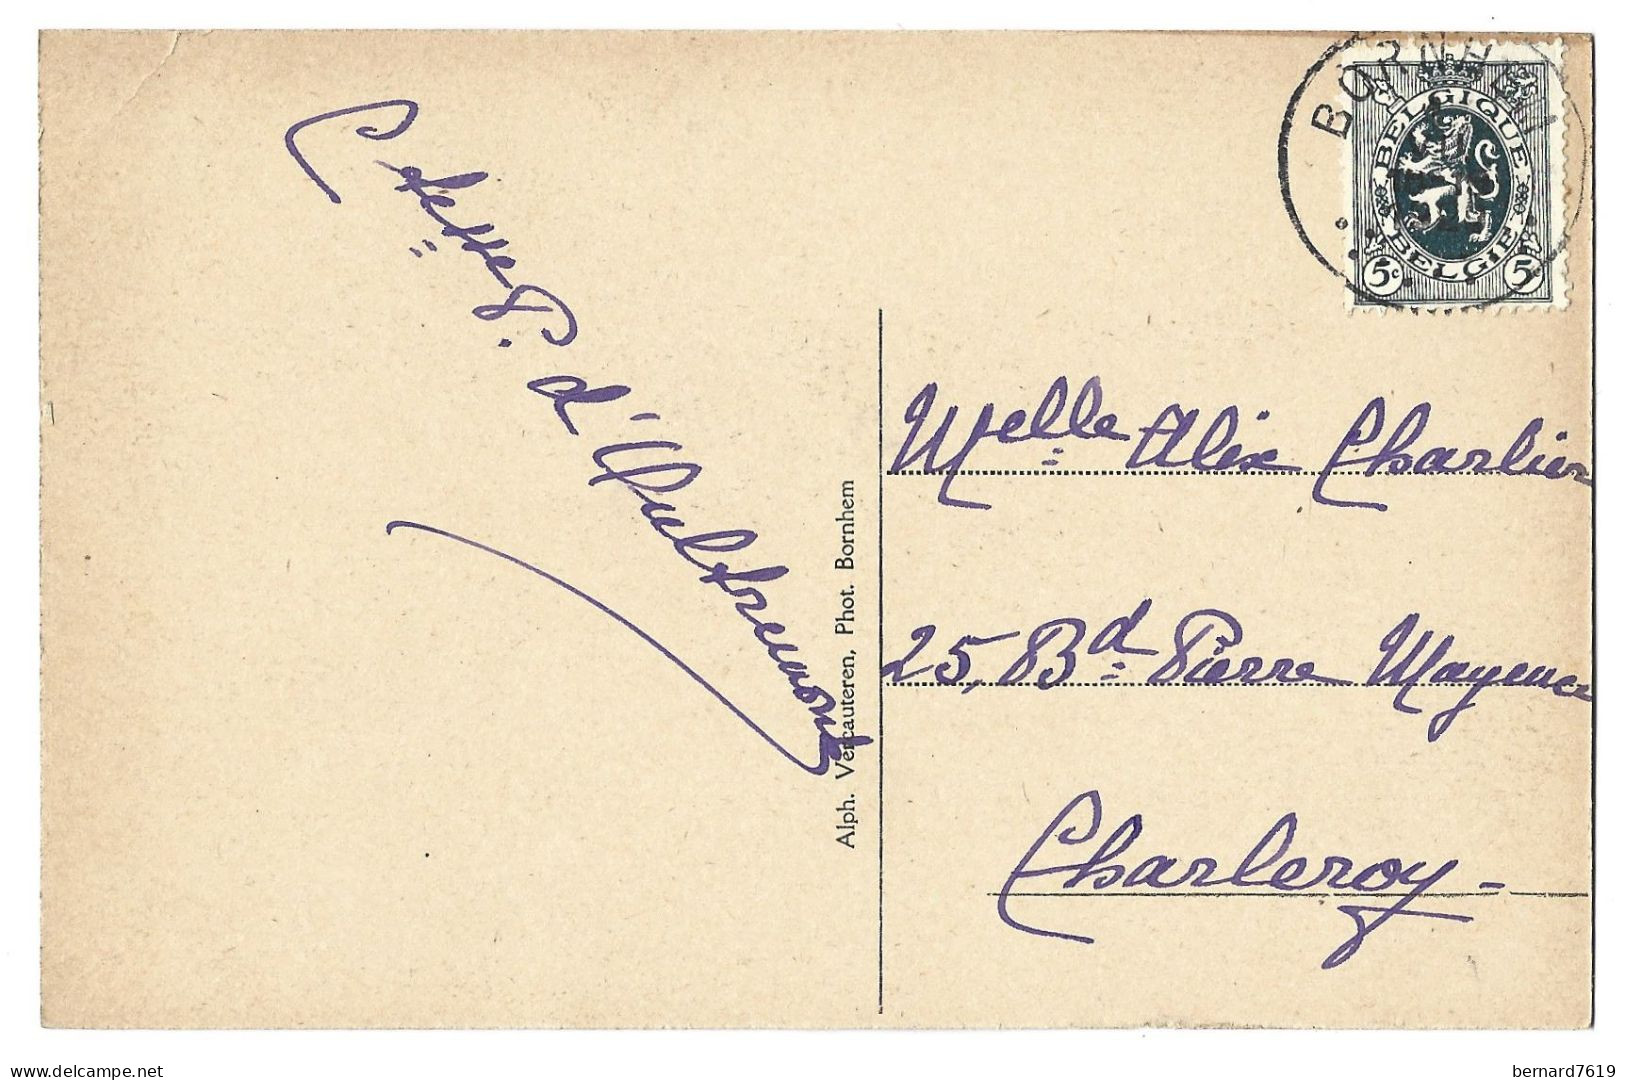 Ctesse P. d'Oultremont
Alph. Vercauteren, Phot. Bornhem
BORNHEM
BELGIQUE
BELGIE
5c 5c
Melle Alix Charlier
25, Bd Pierre Mayence
Charleroy -
bernard7619